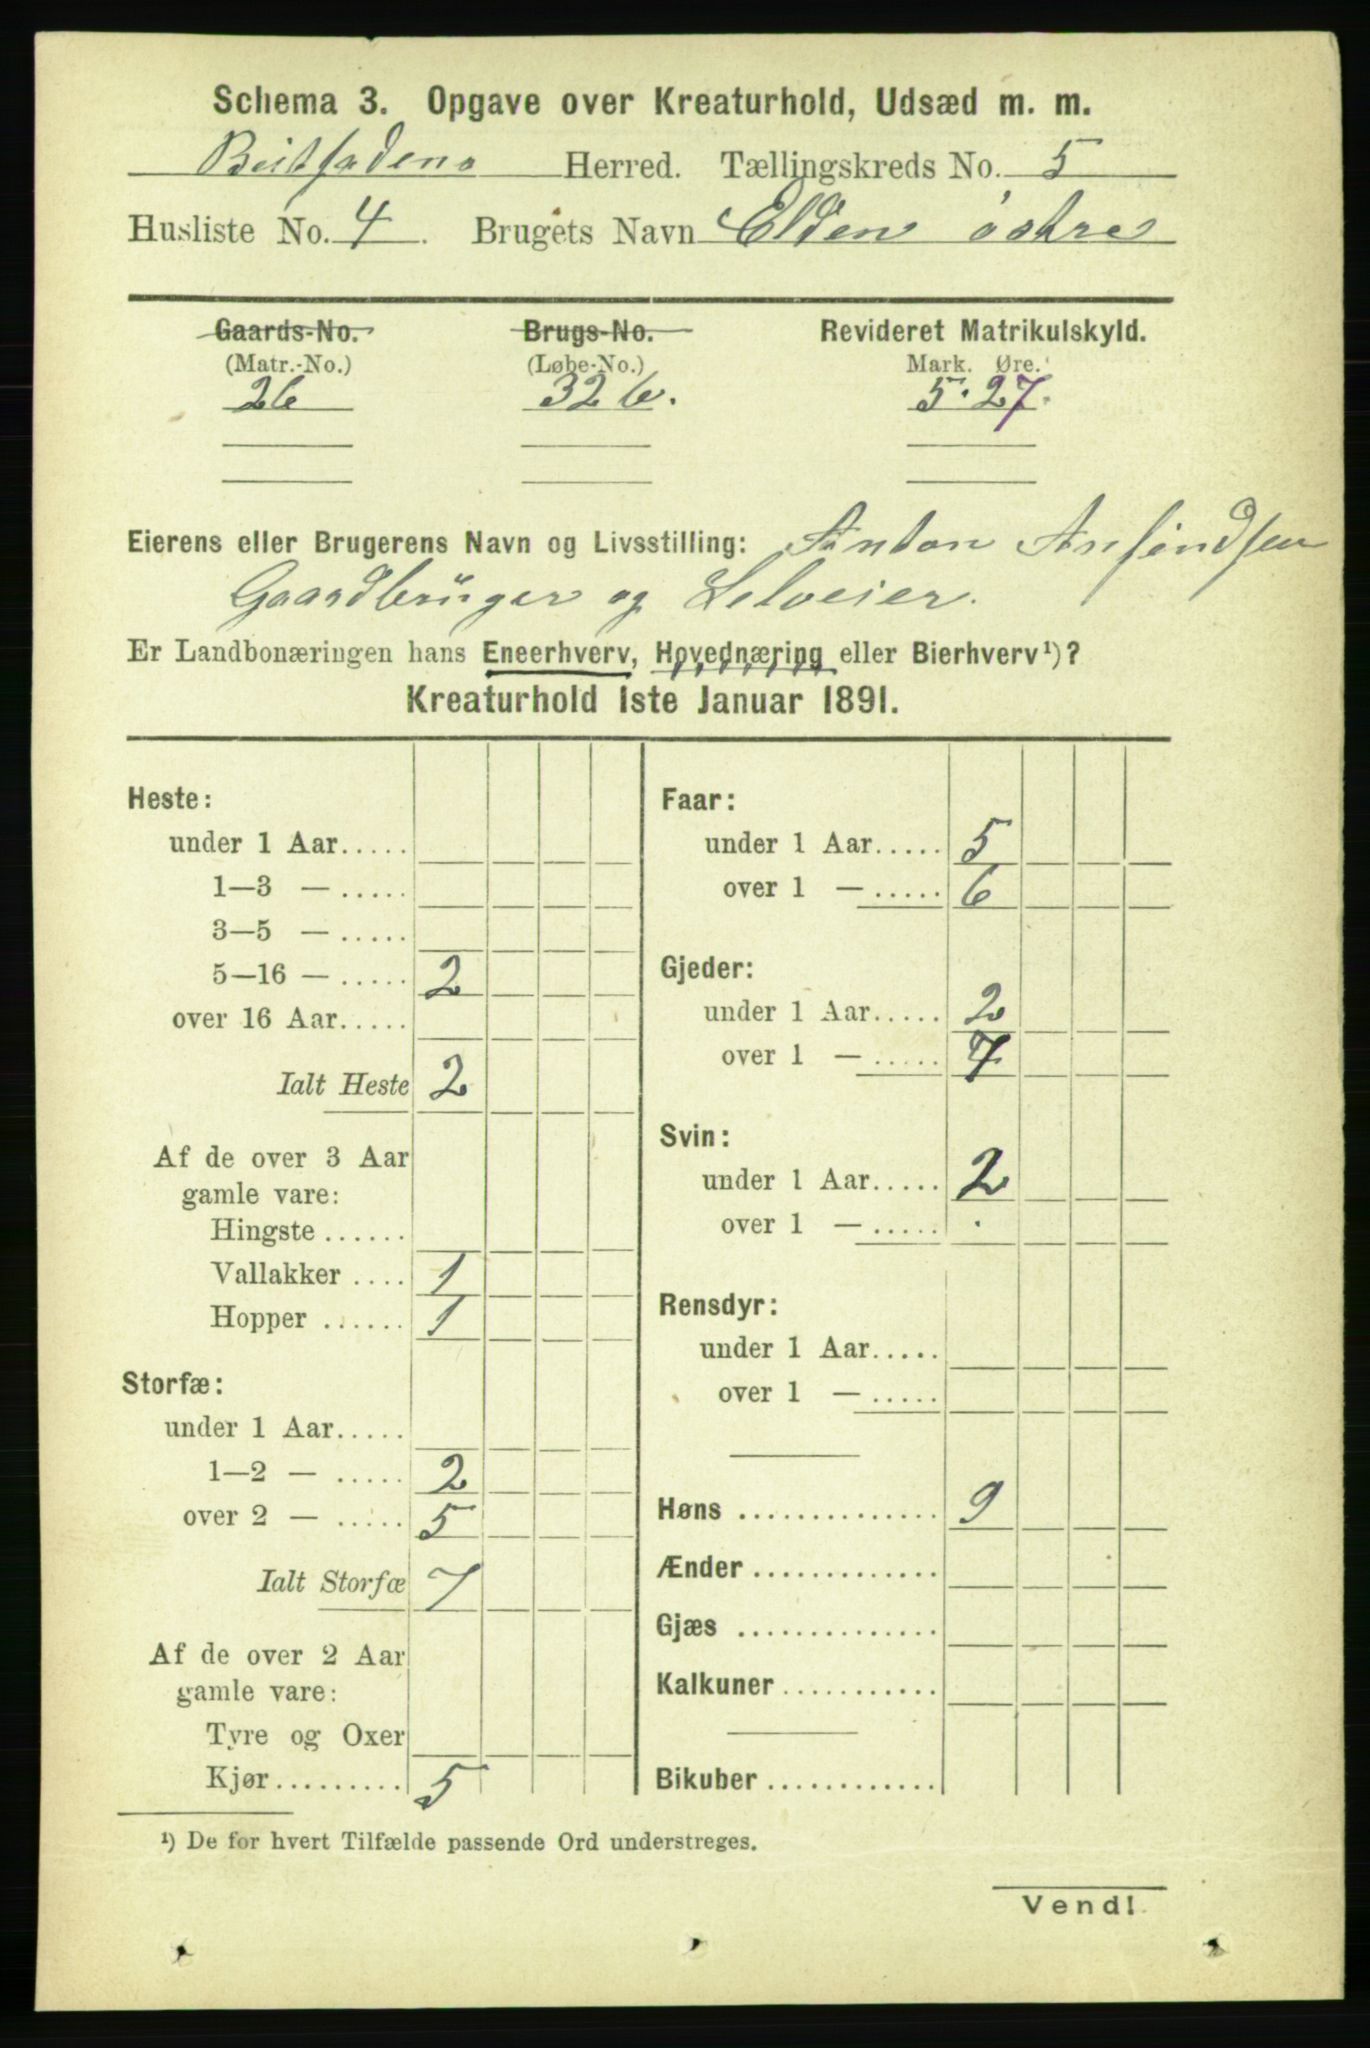 Schema 3. Opgave over Kreaturhold, Udsæd m. m.
Beitstadens Herred. Tællingskreds No. 5
Husliste No. 4. Brugets Navn Elden østre
Gaards-No. Brugs-No. Revideret Matrikulskyld.
(Matr.-No.) (Løbe-No.) Mark. Øre.
26 32 b. 5. 27.
Eierens eller Brugerens Navn og Livsstilling: Anton Arnfindsen
Gaardbruger og Selveier.
Er Landbonæringen hans Eneerhverv, Hovednæring eller Bierhverv¹)?
Kreaturhold 1ste Januar 1891.
Heste:
under 1 Aar.....
1—3 — .....
3—5 — .....
5—16 — ..... 2
over 16 Aar.....
Ialt Heste 2
Af de over 3 Aar
gamle vare:
Hingste ......
Vallakker .... 1
Hopper ...... 1
Storfæ:
under 1 Aar.....
1—2 — ..... 2
over 2 — ..... 5
Ialt Storfæ 7
Af de over 2 Aar
gamle vare:
Tyre og Oxer
Kjør......... 5
Faar:
under 1 Aar..... 5
over 1 — ..... 6
Gjeder:
under 1 Aar..... 2
over 1 — ..... 7
Svin:
under 1 Aar..... 2
over 1 — ..... .
Rensdyr:
under 1 Aar.....
over 1 — .....
Høns .............. 9
Ænder .............
Gjæs ..............
Kalkuner ...........
Bikuber .............
¹) De for hvert Tilfælde passende Ord understreges.
Vend!